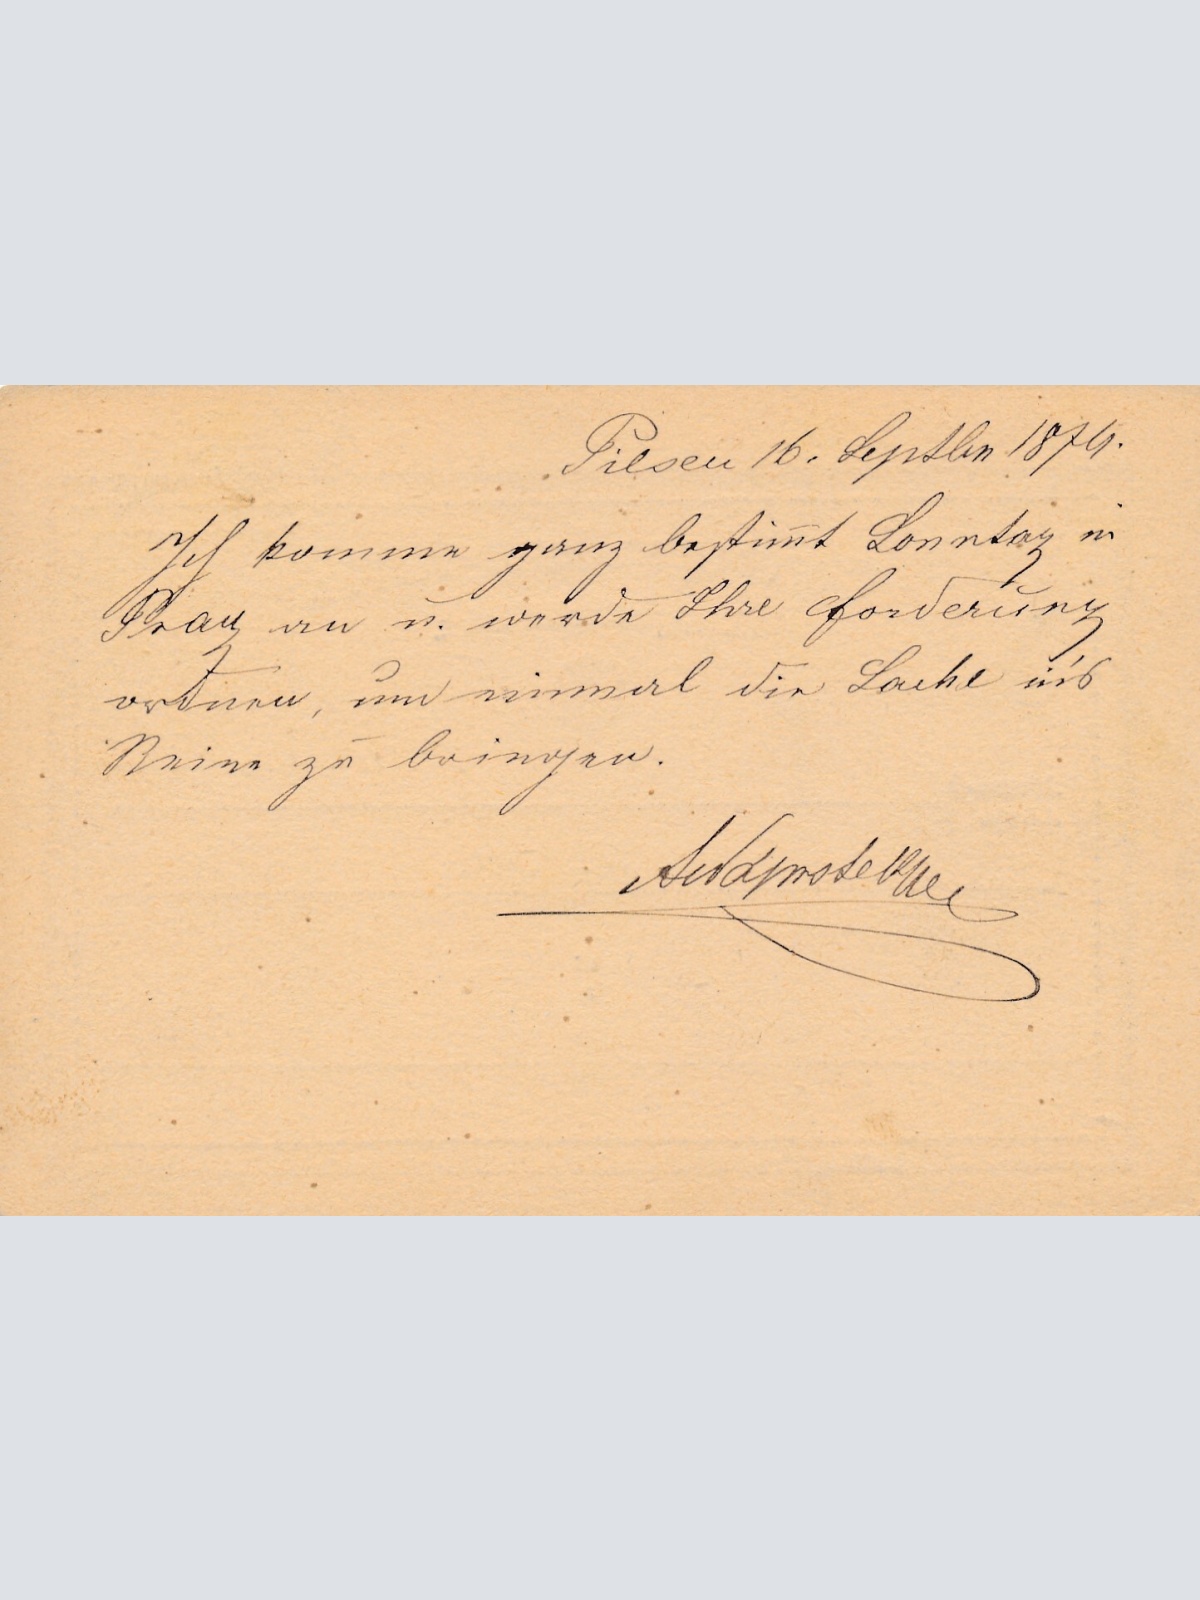 Pilsen 16. Septbr 1874.
Ich komme ganz bestim̅t Sonntag in
Prag an u. werde Ihre Forderung
ordnen, um einmal die Sache in's
Reine zu bringen.